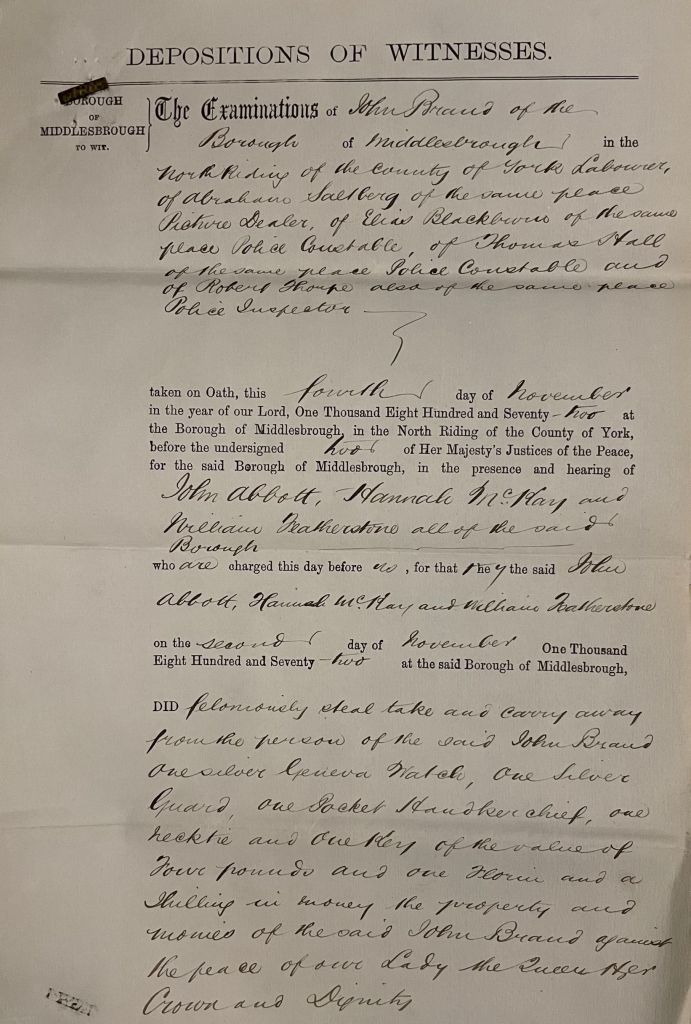 DEPOSITIONS OF WITNESSES.
BOROUGH
OF
MIDDLESBROUGH
TO WIT.
The Examinations of John Brand of the
Borough of Middlesbrough in the
North Riding of the County of York Labourer,
of Abraham Saltberg of the same place
Picture Dealer, of Elias Blackburn of the same
place Police Constable, of Thomas Hall
of the same place Police Constable and
of Robert Thorpe also of the same place
Police Inspector
taken on Oath, this fourth day of November
in the year of our Lord, One Thousand Eight Hundred and Seventy-two at
the Borough of Middlesbrough, in the North Riding of the County of York,
before the undersigned two of Her Majesty's Justices of the Peace,
for the said Borough of Middlesbrough, in the presence and hearing of
John Abbott, Hannah McKay and
William Featherstone all of the said
Borough
who are charged this day before us, for that they the said John
Abbott, Hannah McKay and William Featherstone
on the second day of November One Thousand
Eight Hundred and Seventy-two at the said Borough of Middlesbrough,
DID feloniously steal take and carry away
from the person of the said John Brand
one silver Geneva Watch, one Silver
Guard, one Pocket Handkerchief, one
necktie and one Key of the value of
Four pounds and one Florin and a
Shilling in money the property and
monies of the said John Brand against
the peace of our Lady the Queen Her
Crown and Dignity